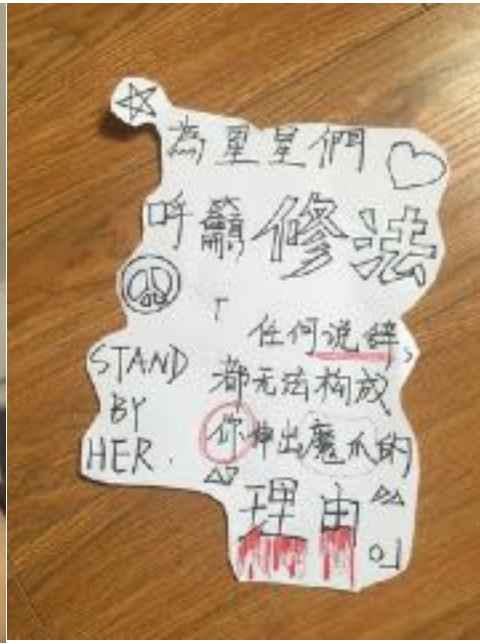 為星星們
呼籲修法
「任何说辞,
都无法构成
你伸出魔爪的
理由」
STAND
BY
HER.